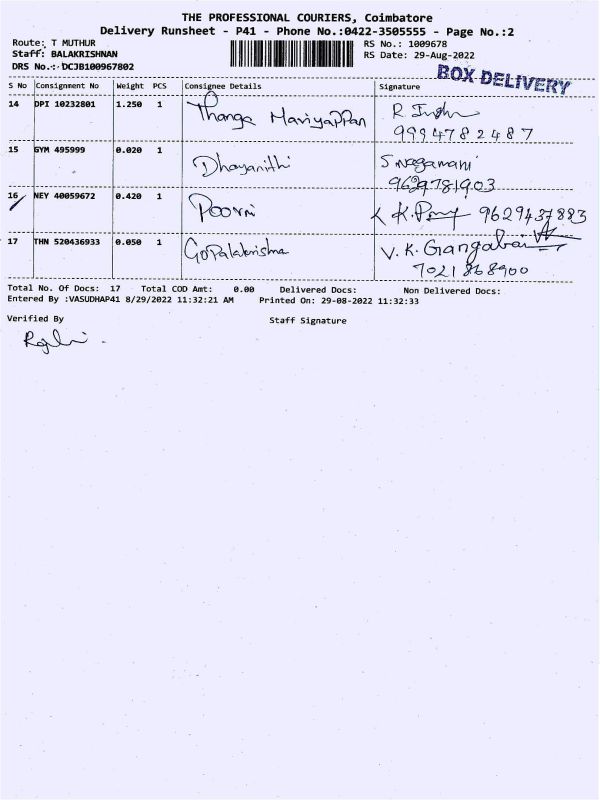 THE PROFESSIONAL COURIERS, Coimbatore
Delivery Runsheet - P41 - Phone No.:0422-3505555 - Page No.:2
Route: T MUTHUR RS No.: 1009678
Staff: BALAKRISHNAN RS Date: 29-Aug-2022
DRS No.: DCJB100967802
BOX DELIVERY
S No Consignment No Weight PCS Consignee Details Signature
14 DPI 10232801 1.250 1 Thanga Mariyappan R.
9994782487
15 GYM 495999 0.020 1 Dhayanithi S. Nagamani
9629781903
16 NEY 40059672 0.420 1 Poorni K. 9629437883
17 THN 520436933 0.050 1 Gopalakrishna V. K.
7021868900
Total No. Of Docs: 17 Total COD Amt: 0.00 Delivered Docs: Non Delivered Docs:
Entered By :VASUDHAP41 8/29/2022 11:32:21 AM Printed On: 29-08-2022 11:32:33
Verified By Staff Signature